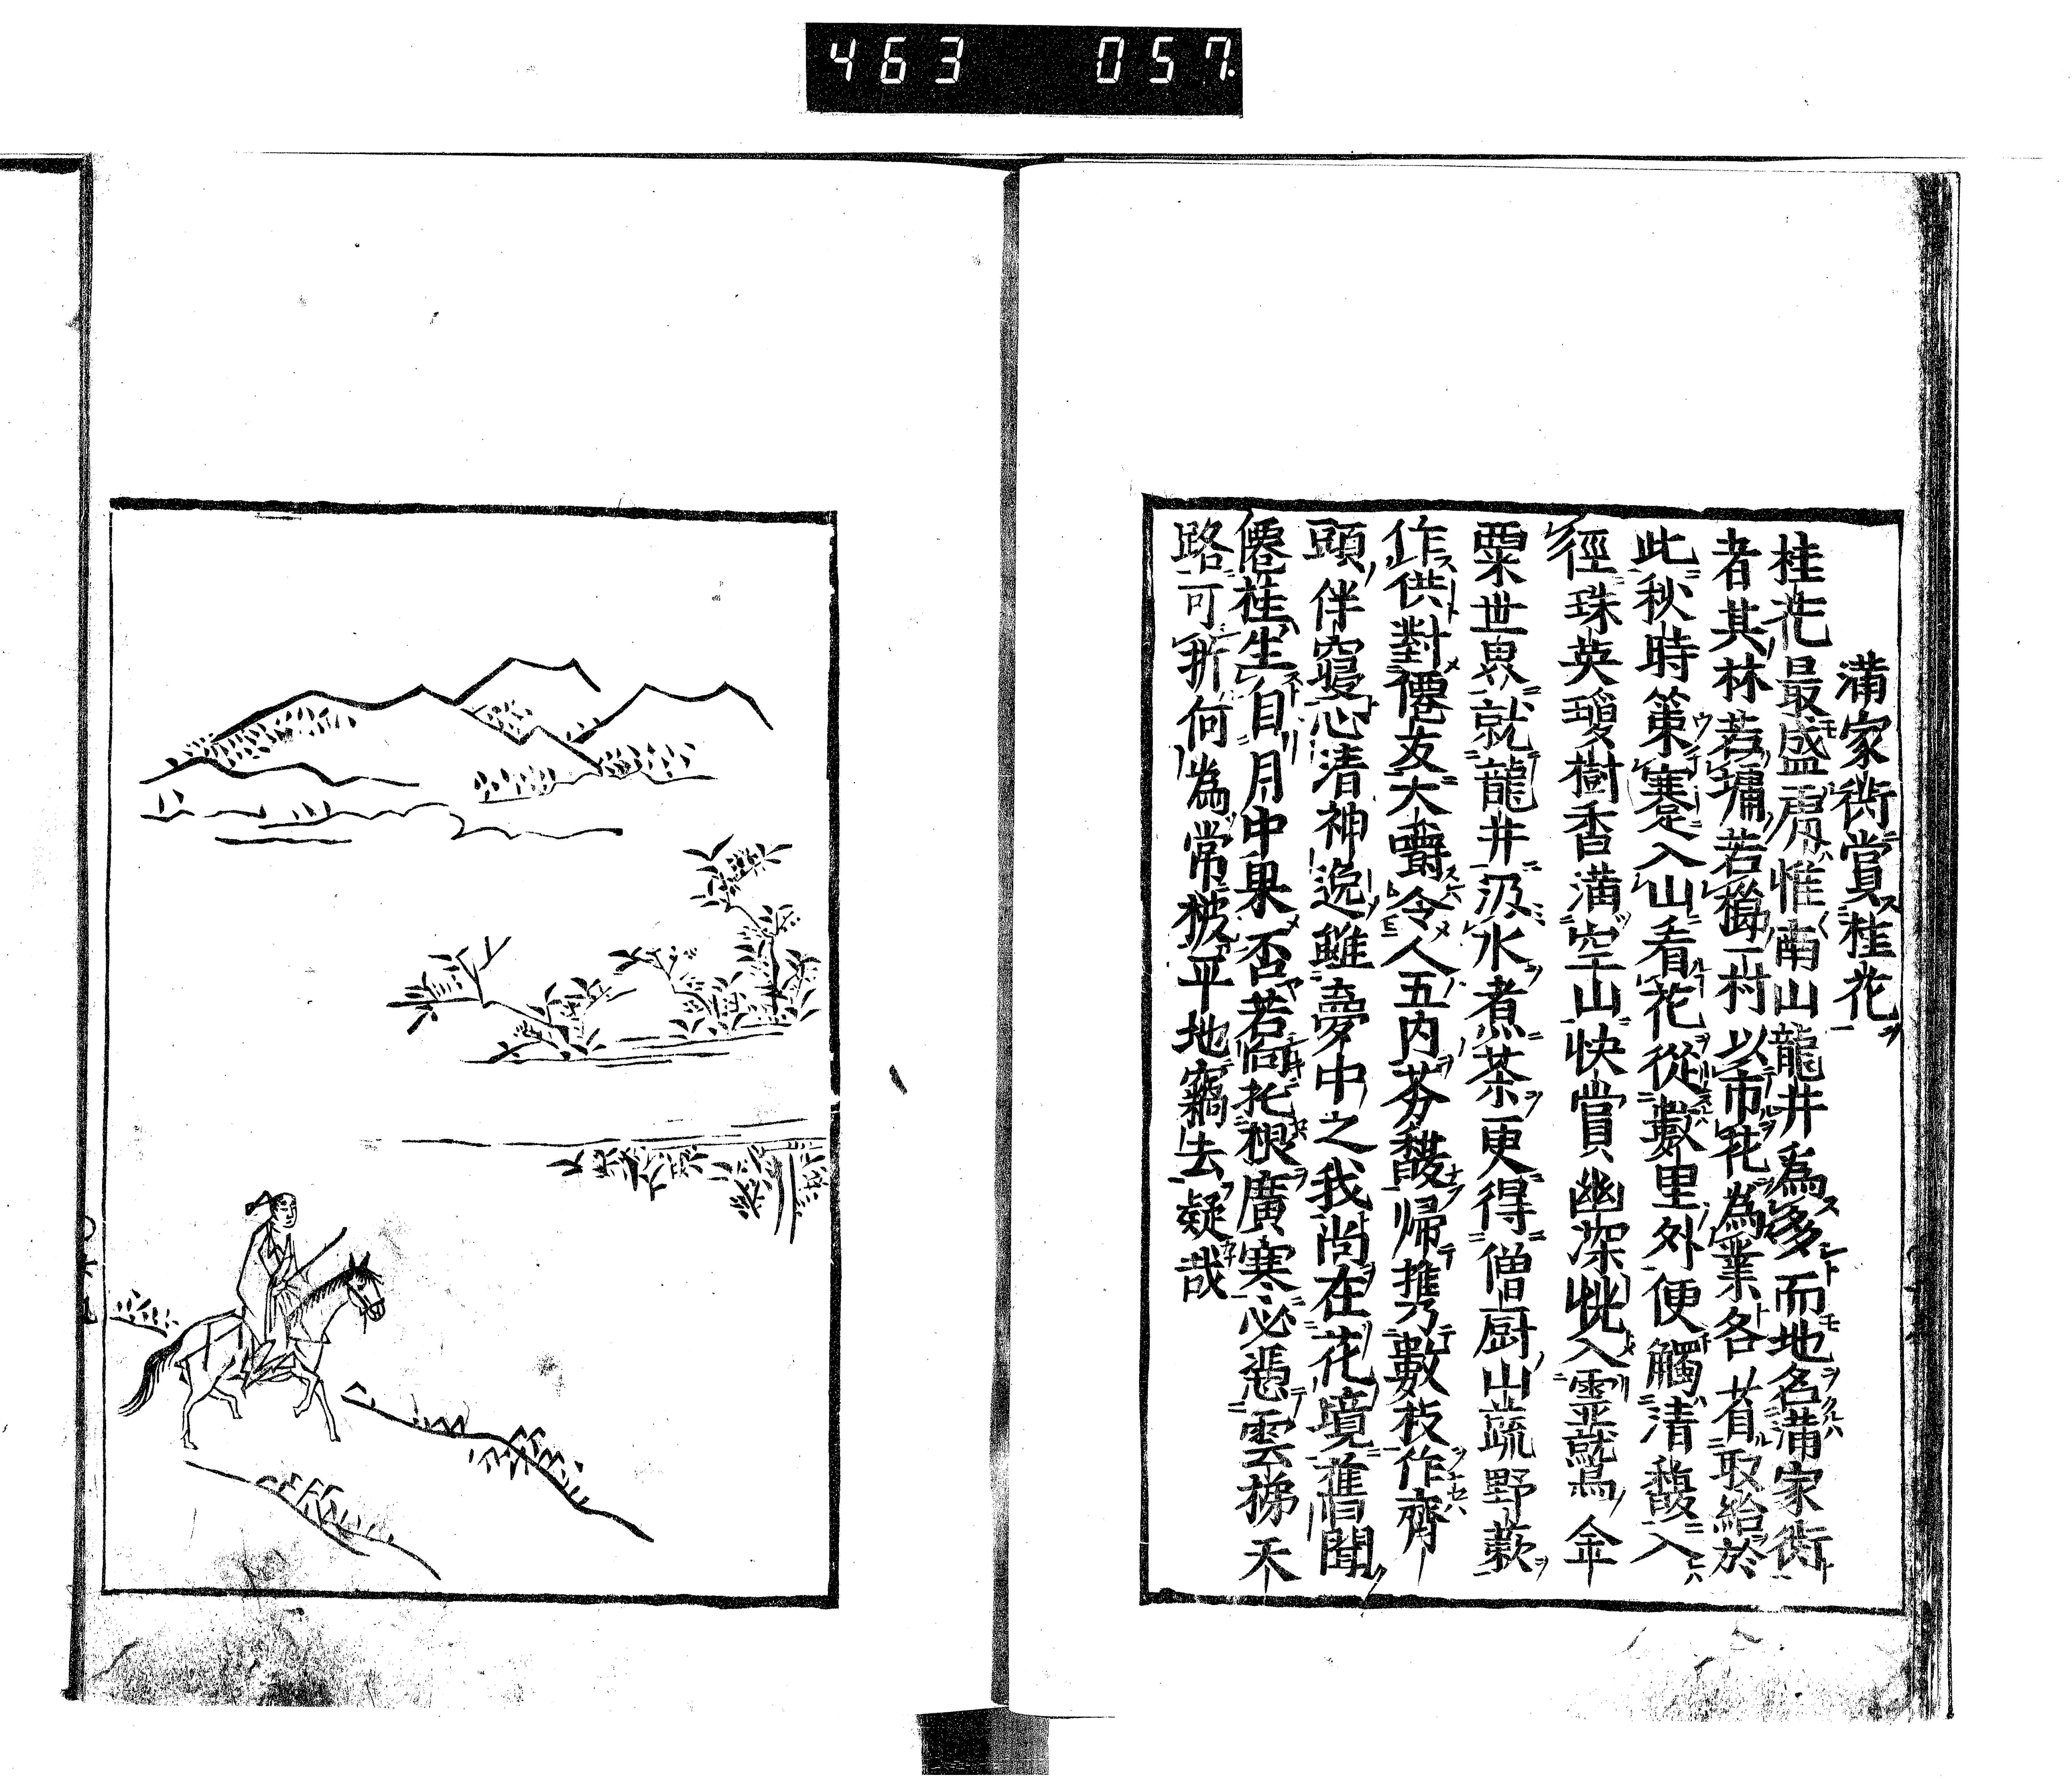 463 057
滿家衖賞桂花
桂花最盛處惟南山龍井為多而地名滿家衖
者其林若墉若櫛一村以市花為業各省取給於
此秋時策蹇入山看花從數里外便觸清馥入
徑珠英瓊樹香滿空山快賞幽深恍入靈鷲金
粟世界就龍井汲水煮茶更得僧厨山蔬野蔌
作供對僊友大嚼令人五内芬馥帰携數枝作齋
頭伴寢心清神逸雖夢中之我尚在花境舊聞
僊桂生自月中果否若向托根廣寒必憑雲梯天
路可折何為常被平地竊去疑哉